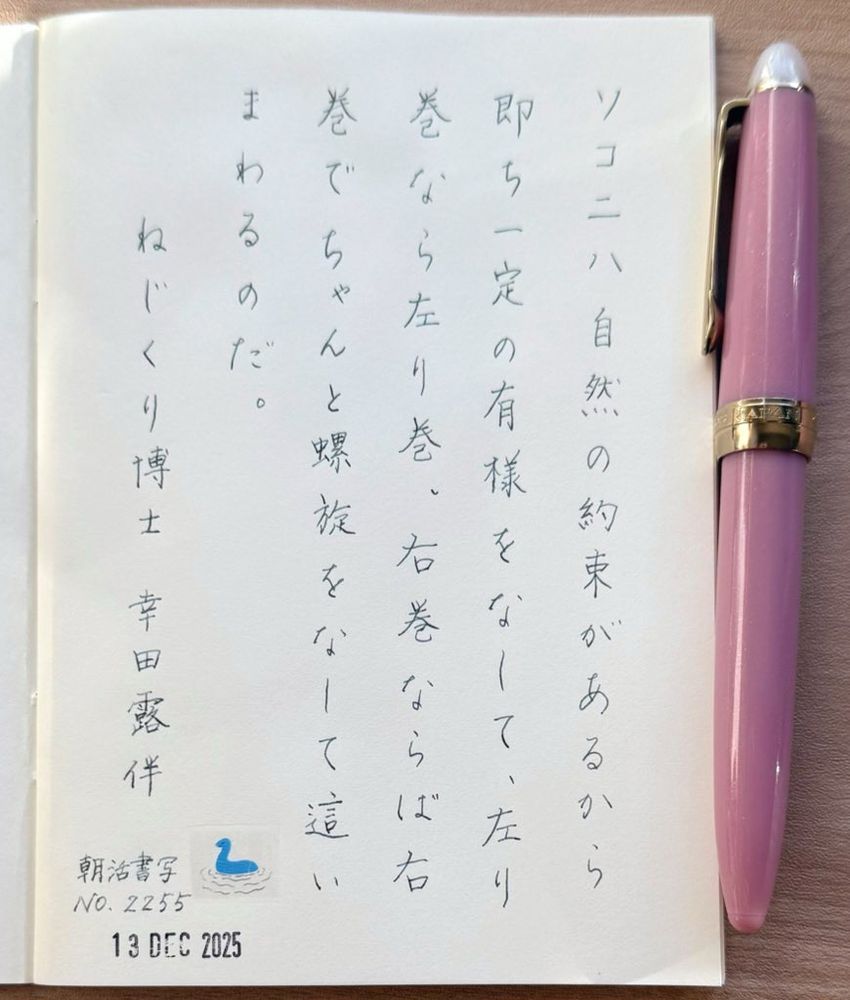 ソコニハ自然の約束があるから
即ち一定の有様をなして、左り
巻なら左り巻、右巻ならば右
巻でちゃんと螺旋をなして這い
まわるのだ。
ねじくり博士 幸田露伴
朝活書写
NO. 2255
13 DEC 2025
JAPAN